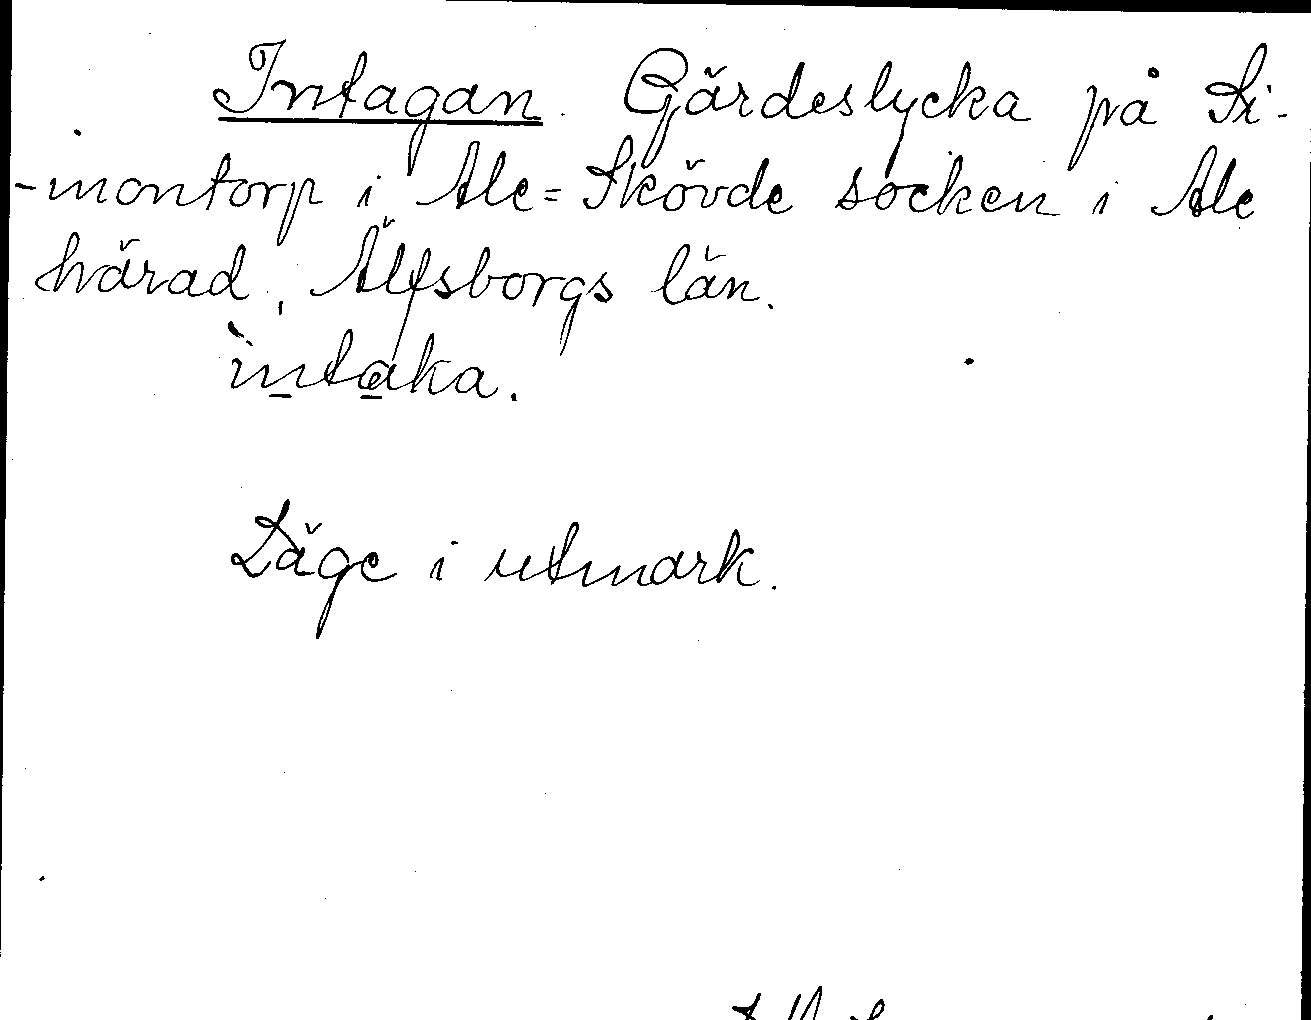 Intagan. Gärdeslycka på Si-
-montorp i Ale=Skövde socken i Ale
härad, Älfsborgs län.
ìntaka.
Läge i utmark.